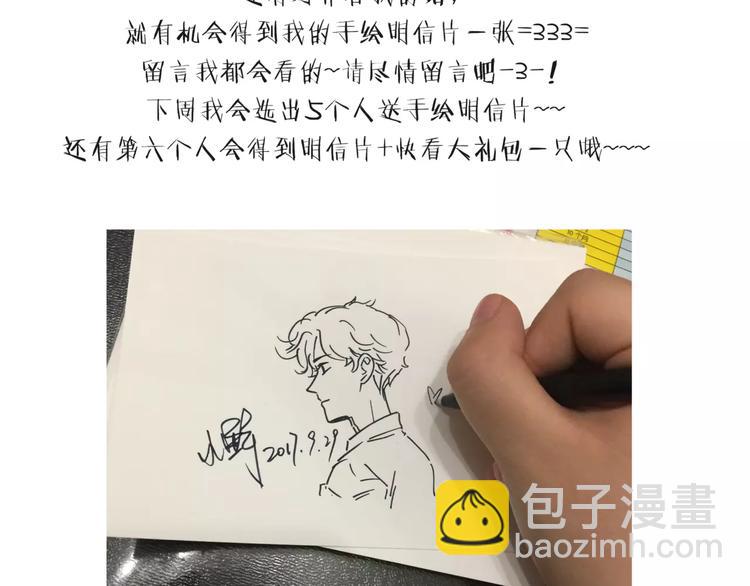 就有机会得到我的手绘明信片一张=333=
留言我都会看的~请尽情留言吧-3-！
下周我会选出5个人送手绘明信片~~
还有第六个人会得到明信片+快看大礼包一只哦~~~
2017.9.29
包子漫畫
baozimh.com